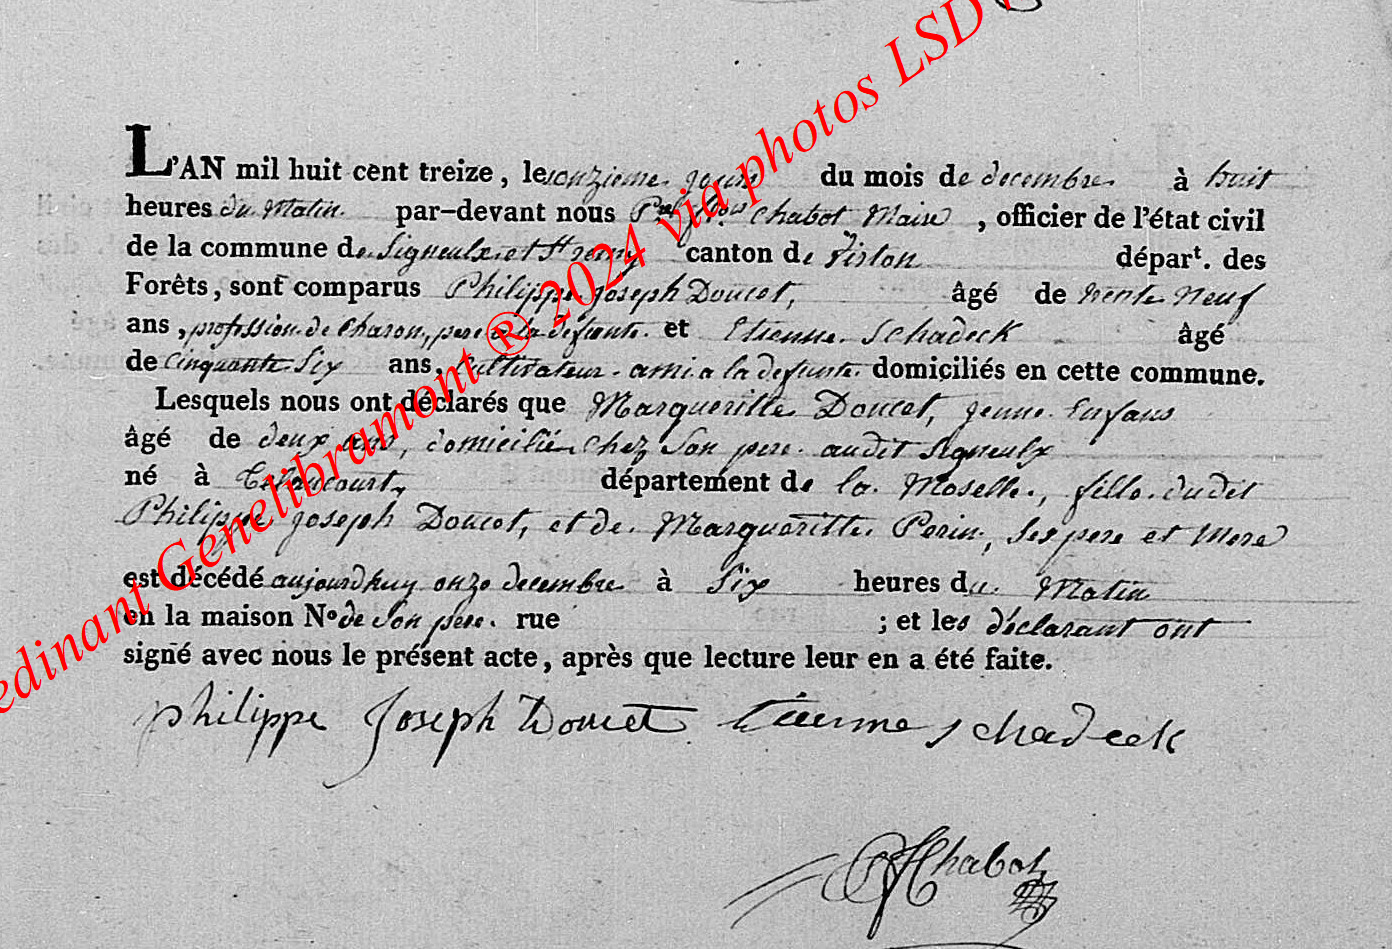 L'AN mil huit cent treize, les onzieme jour du mois de decembre à huit
heures du Matin par-devant nous Chabot Maire, officier de l'état civil
de la commune de Signeulx et St remy canton de Virton départ. des
Forêts, sont comparus Philippe Joseph Doucet, âgé de trente Neuf
ans, profession de Charon, pere a la defunte et Etienne Schadeck âgé
de Cinquante Six ans, Cultivateur ami a la defunte domiciliés en cette commune.
Lesquels nous ont déclarés que Margueritte Doucet, jeune Enfans
âgé de deux ans, domicilie chez Son pere audit Signeulx
né à département de la Moselle, fille dudit
Philippe Joseph Doucet, et de Margueritte Perin, ses pere et Mere
est décédé aujourdhuy onze decembre à Six heures du Matin
en la maison N° de Son pere. rue ; et les déclarant ont
signé avec nous le présent acte, après que lecture leur en a été faite.
philippe Joseph Doucet Etienne schadeck
Chabot
edinant Genelibramont ® 2024 via photos LSD